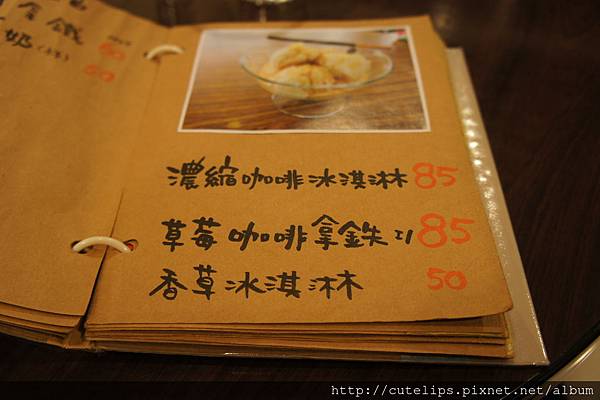 拿鐵
60
奶(
50
濃縮咖啡冰淇淋 85
草莓咖啡拿鉄 85
香草冰淇淋 50
http://cutelips.pixnet.net/album